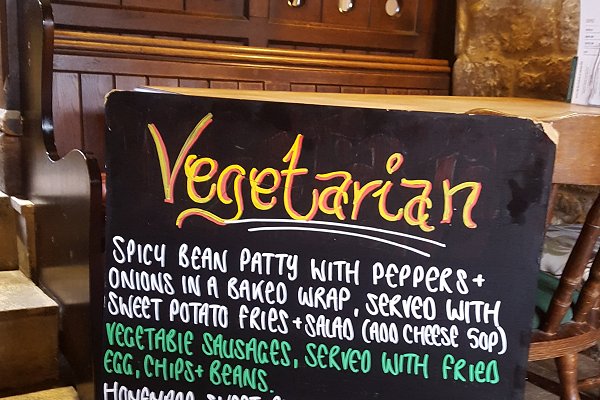 Vegetarian
SPICY BEAN PATTY WITH PEPPERS +
ONIONS IN A BAKED WRAP, SERVED WITH
SWEET POTATO FRIES + SALAD (ADD CHEESE 50P)
VEGETABLE SAUSAGES, SERVED WITH FRIED
EGG, CHIPS + BEANS.
HOMEMADE SWEET